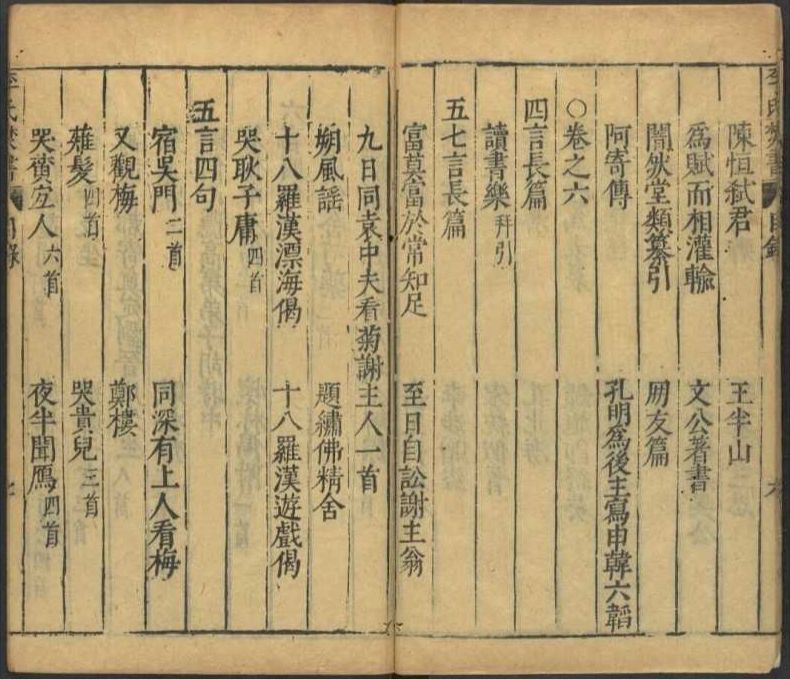 陳恒弑君 王半山
為賦而相灌輸 文公著書
闇然堂類纂引 朋友篇
阿寄傳 孔明為後主寫申韓六韜
○卷之六
四言長篇
讀書樂 幷引
五七言長篇
富莫富於常知足 至日自訟謝主翁
九日同袁中夫看菊謝主人一首
朔風謡 題繡佛精舍
十八羅漢漂海偈 十八羅漢遊戲偈
哭耿子庸 四首
五言四句
宿吳門 二首 同深有上人看梅
又觀梅 鄭樓
薙髮 四首 哭貴兒 三首
哭黃宜人 六首 夜半聞鴈 四首
李氏焚書 目錄